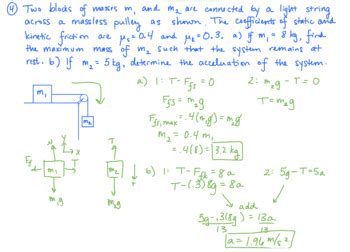 ④ Two blocks of masses m₁ and m₂ are connected by a light string
across a massless pulley as shown. The coefficients of static and
kinetic friction are μs = 0.4 and μk = 0.3. a) If m₁ = 8 kg, find
the maximum mass of m₂ such that the system remains at
rest. b) If m₂ = 5 kg, determine the acceleration of the system.
a) 1: T - Ffs = 0
2: m₂g - T = 0
Ffs = m₂g
T = m₂g
Ffs,max = .4(m₁g) = m₂g
m₂ = 0.4 m₁
= .4(8) = 3.2 kg
m₁
m₂
N
y
x
Ff
m₁
T
m₁g
T
m₂
+
m₂g
b) 1: T - Ffk = 8a
2: 5g - T = 5a
T - (.3)8g = 8a
add
5g - .3(8g) = 13a
13 13
a = 1.96 m/s²